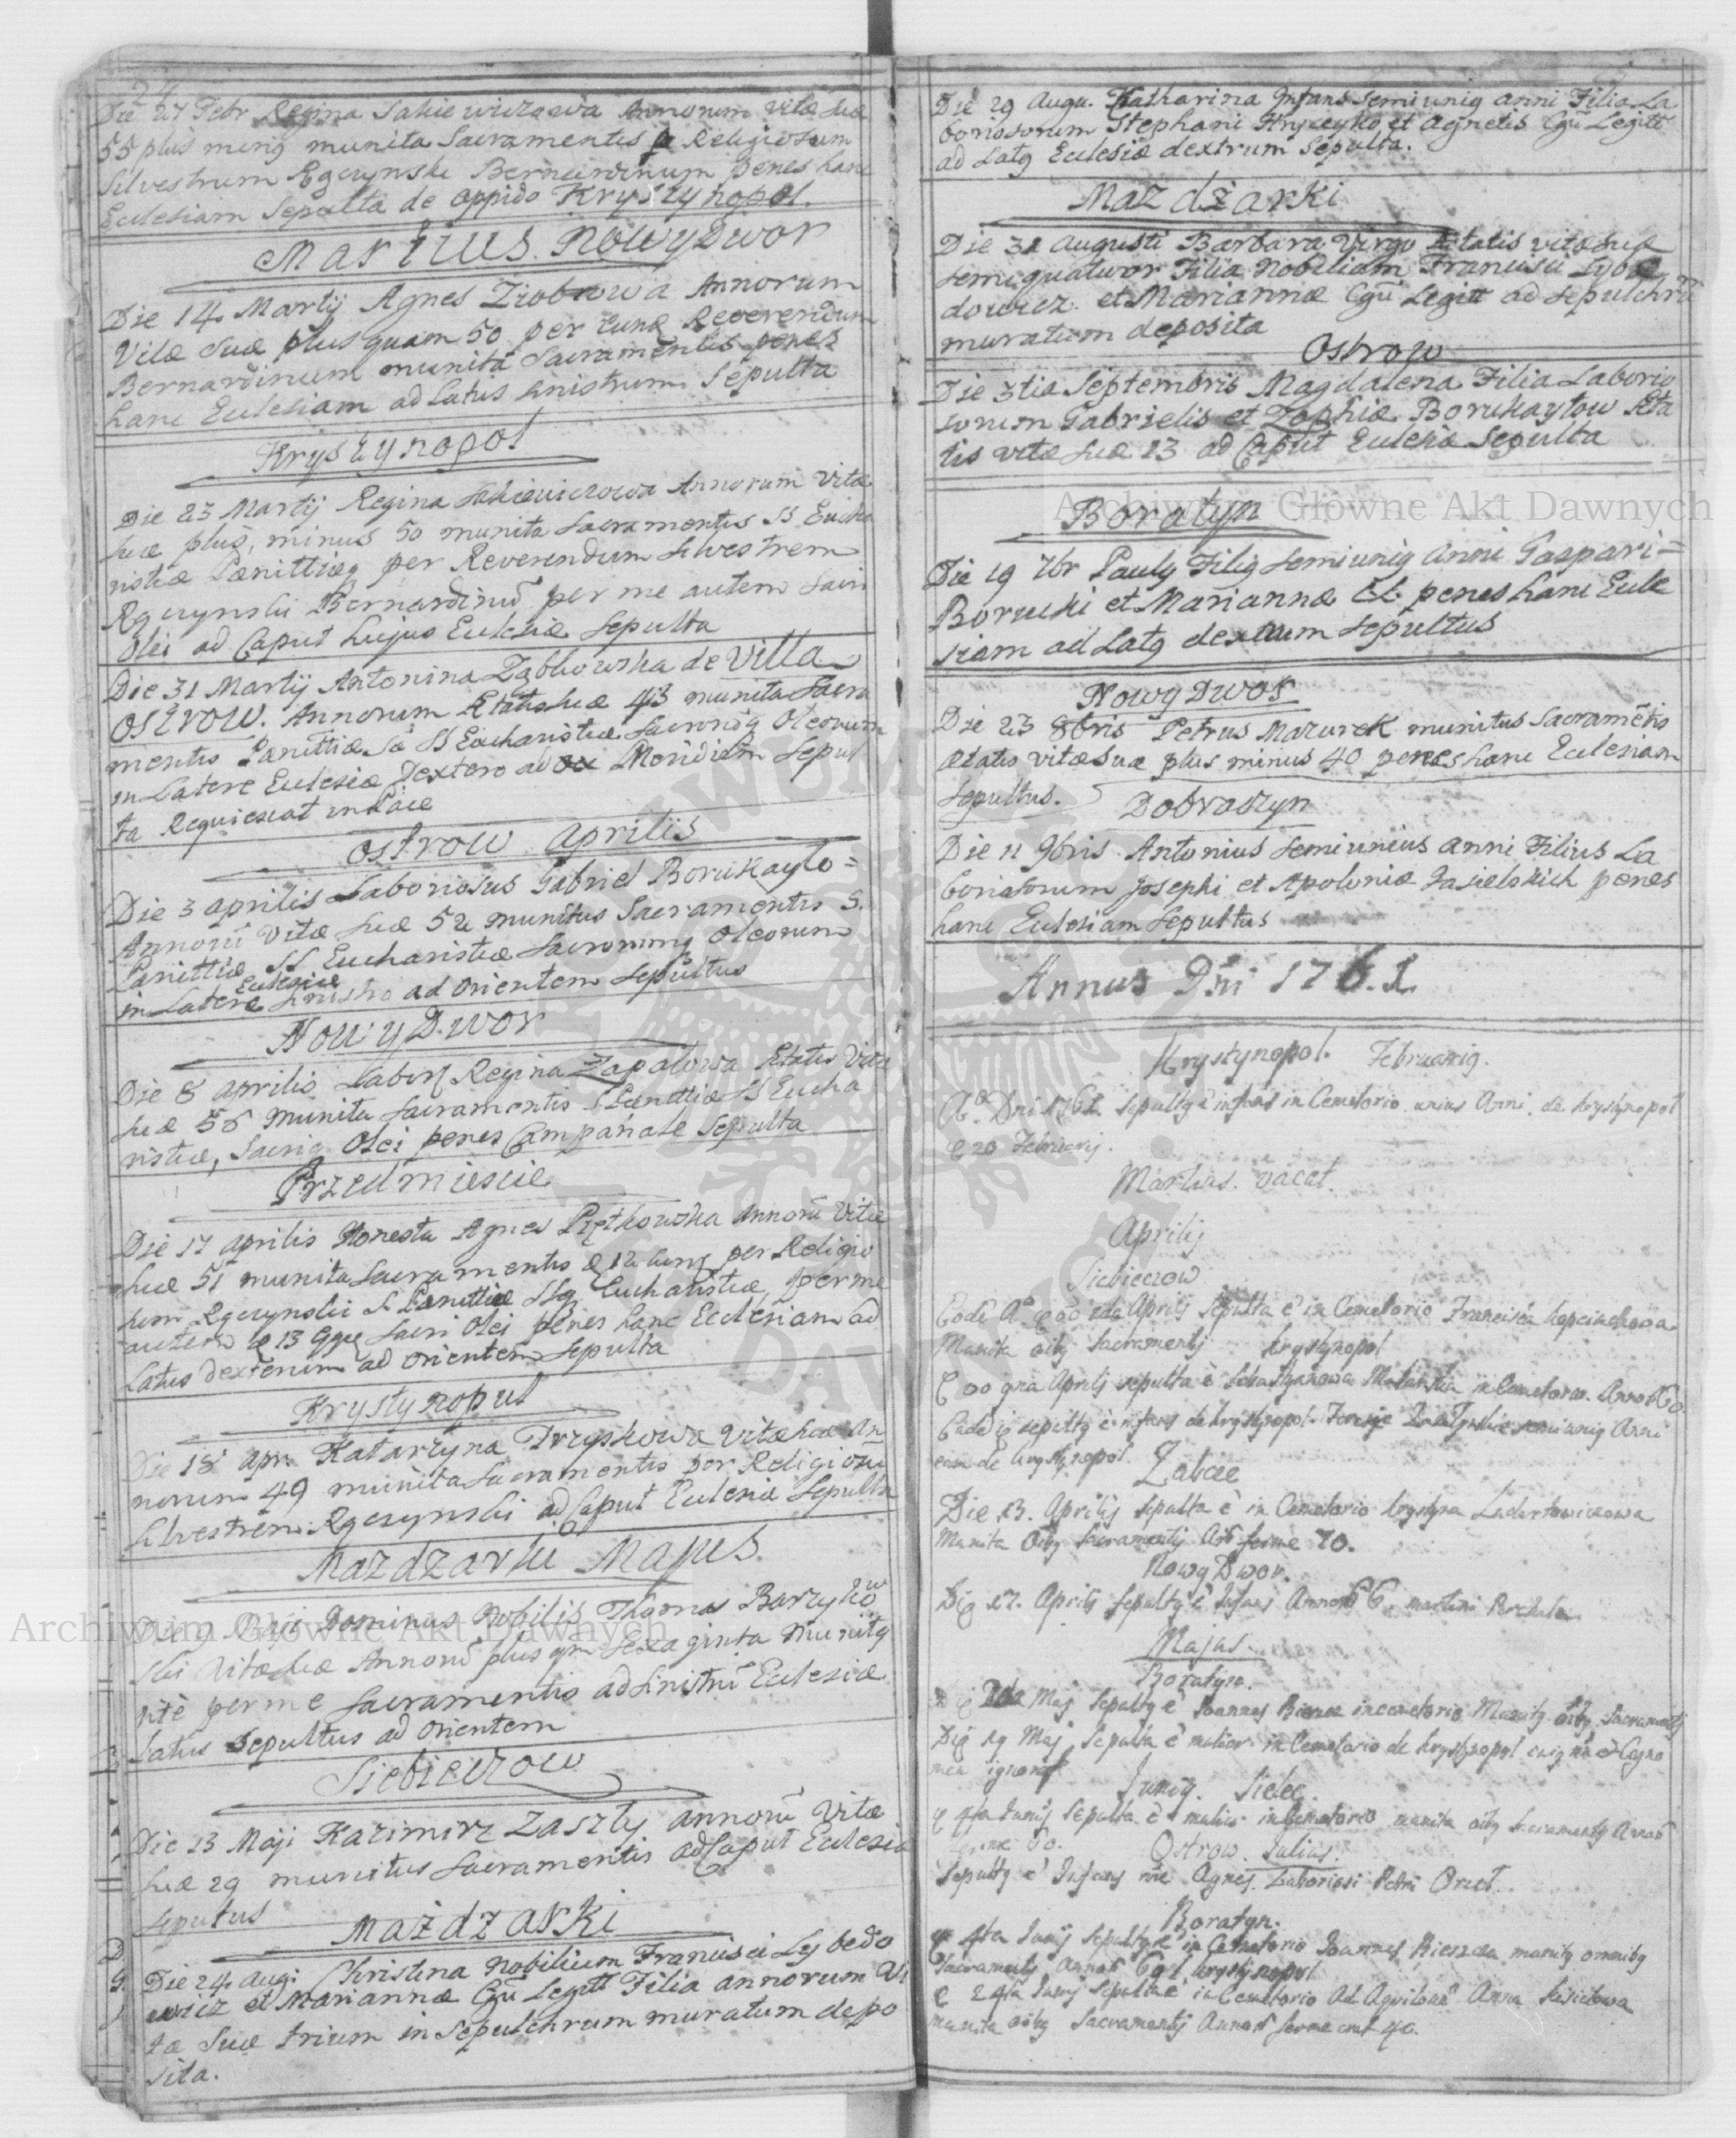 Die 27 Febr Regina Sakiewiczowa Annorum vitæ suæ
55 plus minq munita Sacramentis p Religiosum
Silvestrum Rgczynski Bernardinum penes hanc
Ecclesiam Sepulta de oppido Krystynopol.
Martius. Nowy Dwor
Die 14 Martij Agnes Ziobrowa Annorum
Vitæ suæ plus quam 50 per eunq Reverendum
Bernardinum munita Sacramentis penes
hanc Ecclesiam ad latus sinistrum Sepulta
Krystynopol
Die 23 Martij Regina Sakiewiczowa Annorum Vitæ
suæ plus, minus 50 munita Sacramentis SS Eucha
ristiæ Pænittiæq per Reverendum Silvestrem
Rgczynski Bernardinũ per me autem Sacri
Olei ad Caput hujus Eclesiæ Sepulta
Die 31 Martij Antonina Ząbkowska de Villa
Ostrow. Annorum Ætatis suæ 43 munita Sacra
mentis Pænittiæ Sa SS Eucharistiæ Sacroriq Oleorum
in Latere Eclesiæ Dextero ad Meridiem Sepul
ta Requiescat in Pace
Ostrow Aprilis
Die 3 aprilis Laboriosus Gabriel Boruchaylo=
Annorũ Vitæ suæ 52 munitus Sacramentis S.
Pænittiæ SS Eucharistiæ Sacrorumq Oleorum
Eclesiæ
in Latere Sinistro ad Orientem Sepultus
Nowy Dwor
Die 8 aprilis Labors Regina Zapałowa Ætatis Vitæ
suæ 56 munita Sacramentis S Pænittiæ SS Eucha
ristiæ, Sacriq Olei penes Campanale Sepulta
Przedmiescie
Die 17 aprilis Honesta Agnes Piętkowska Annorũ Vitæ
suæ 51 munita Sacramentis 12 per Religio
sum Rgczynski S. Pænittiæ SSq Eucharistiæ, per me
autem 13 Sacri Olei penes hanc Ecclesiam ad
Latus dexterum ad Orientem Sepulta
Krystynopol
Die 18 Apr. Katarzyna Tryskowa Vitæ suæ An
norum 49 munita Sacramentis per Religiosũ
Silvestrem Rgczynski ad Caput Eclesiæ Sepulta
Mazdzarki Majus
Die 9 Maji Dominus Nobilis Thomas Barzykow
ski Vitæ suæ Annorũ plus qm sexaginta munitq
rite per me Sacramentis ad Sinistrũ Eclesiæ
Latus Sepultus ad Orientem
Siebieczow
Die 13 Maji Kazimirz Zaszły annorũ Vitæ
suæ 29 munitus Sacramentis ad Caput Eclesiæ
Sepultus
Mazdzarki
Die 24 Augi Christina Nobilium Francisci Lybedo
wicz et Mariannæ Cgũ Legitt Filia annorum Vi
tæ Suæ trium in Sepulchrum muratum depo
sita.
Die 29 Augu. Katharina Infans semiuniq anni Filia La
boriosorum Stephani Hryceyko et Agnetis Cgũ Legitt
ad Latq Eclesiæ dextrum Sepulta.
Mazdżarki
Die 31 Augusti Barbara Virgo Ætatis vitæ suæ
semiquatuor Filia Nobilium Francisci Lybe
dowicz et Mariannæ Cgũ Legitt ad Sepulchrũ
muratum deposita
Ostrow
Die 3tia Septembris Magdalena Filia Laborio
sorum Gabrielis et Zophiæ Boruchaylow Æta
tis vitæ suæ 13 ad Caput Eclesiæ Sepulta
Boratyn
Die 19 7br Paulq Filiq semiuniq anni Gaspari=
Borucki et Mariannæ CL penes hanc Eccle
siam ad Latq dextrum Sepultus
Nowy Dwor
Die 23 8bris Petrus Mazurek munitus Sacramẽtis
Ætatis vitæ Suæ plus minus 40 penes hanc Ecclesiam
Sepultus.
Dobraczyn
Die 11 9bris Antonius semiunius anni Filius La
boriosorum Josephi et Apoloniæ Jasielskich penes
hanc Eclesiam Sepultus
Annus Dni 1761.
Krystynopol. Februariq.
Ao Dni 1761. Sepultq ẽ infans in Cemetorio unius Anni de Krystynopol
20 Februarij.
Martius. vacat.
Aprilij
Siebieczow
Eodẽ Ao 2da Aprilij Sepulta ẽ in Cemetorio Francisca
Munita oibq Sacramentij Krystynopol
Aprilij sepulta ẽ in Cemetorio. Annor 60
sepultq ẽ infans de Krystynopol semiuniq Anni
de Krystynopol
Zabcze
Die 13. Aprilij Sepulta ẽ in Cemetorio Krystyna Ludartowiczowa
Munita Oibq Sacramentij Anõ ferme 70.
Nowy Dwor.
Die 17. Aprilij Sepultq ẽ Infans Martini
Majus.
Boratyn.
Maj Sepultq ẽ Joannes in cemetorio Munitq oibq Sacramentij
Die 19 Maj Sepulta ẽ mulier in Cemetorio de Krystynopol cuiq nẽ et Cogno
men ignorat
Juniq. Sielec.
4ta Junij Sepulta ẽ mulier in Cemetorio munita oibq Sacramentij Annorũ
Ostrow. Julius.
Sepultq ẽ Infans nñe Agnes Laboriosi Petri
Boratyn.
4ta Junij Sepultq ẽ in Cemetorio Joannes munitq omnibq
Sacramentij Krystynopol
24ta Junij Sepulta ẽ in Cemetorio Ad Aquilonẽ Anna
munita oibq Sacramentij Annorũ ferme erat 40.
Archiwum Główne Akt Dawnych
Archiwum Główne Akt Dawnych